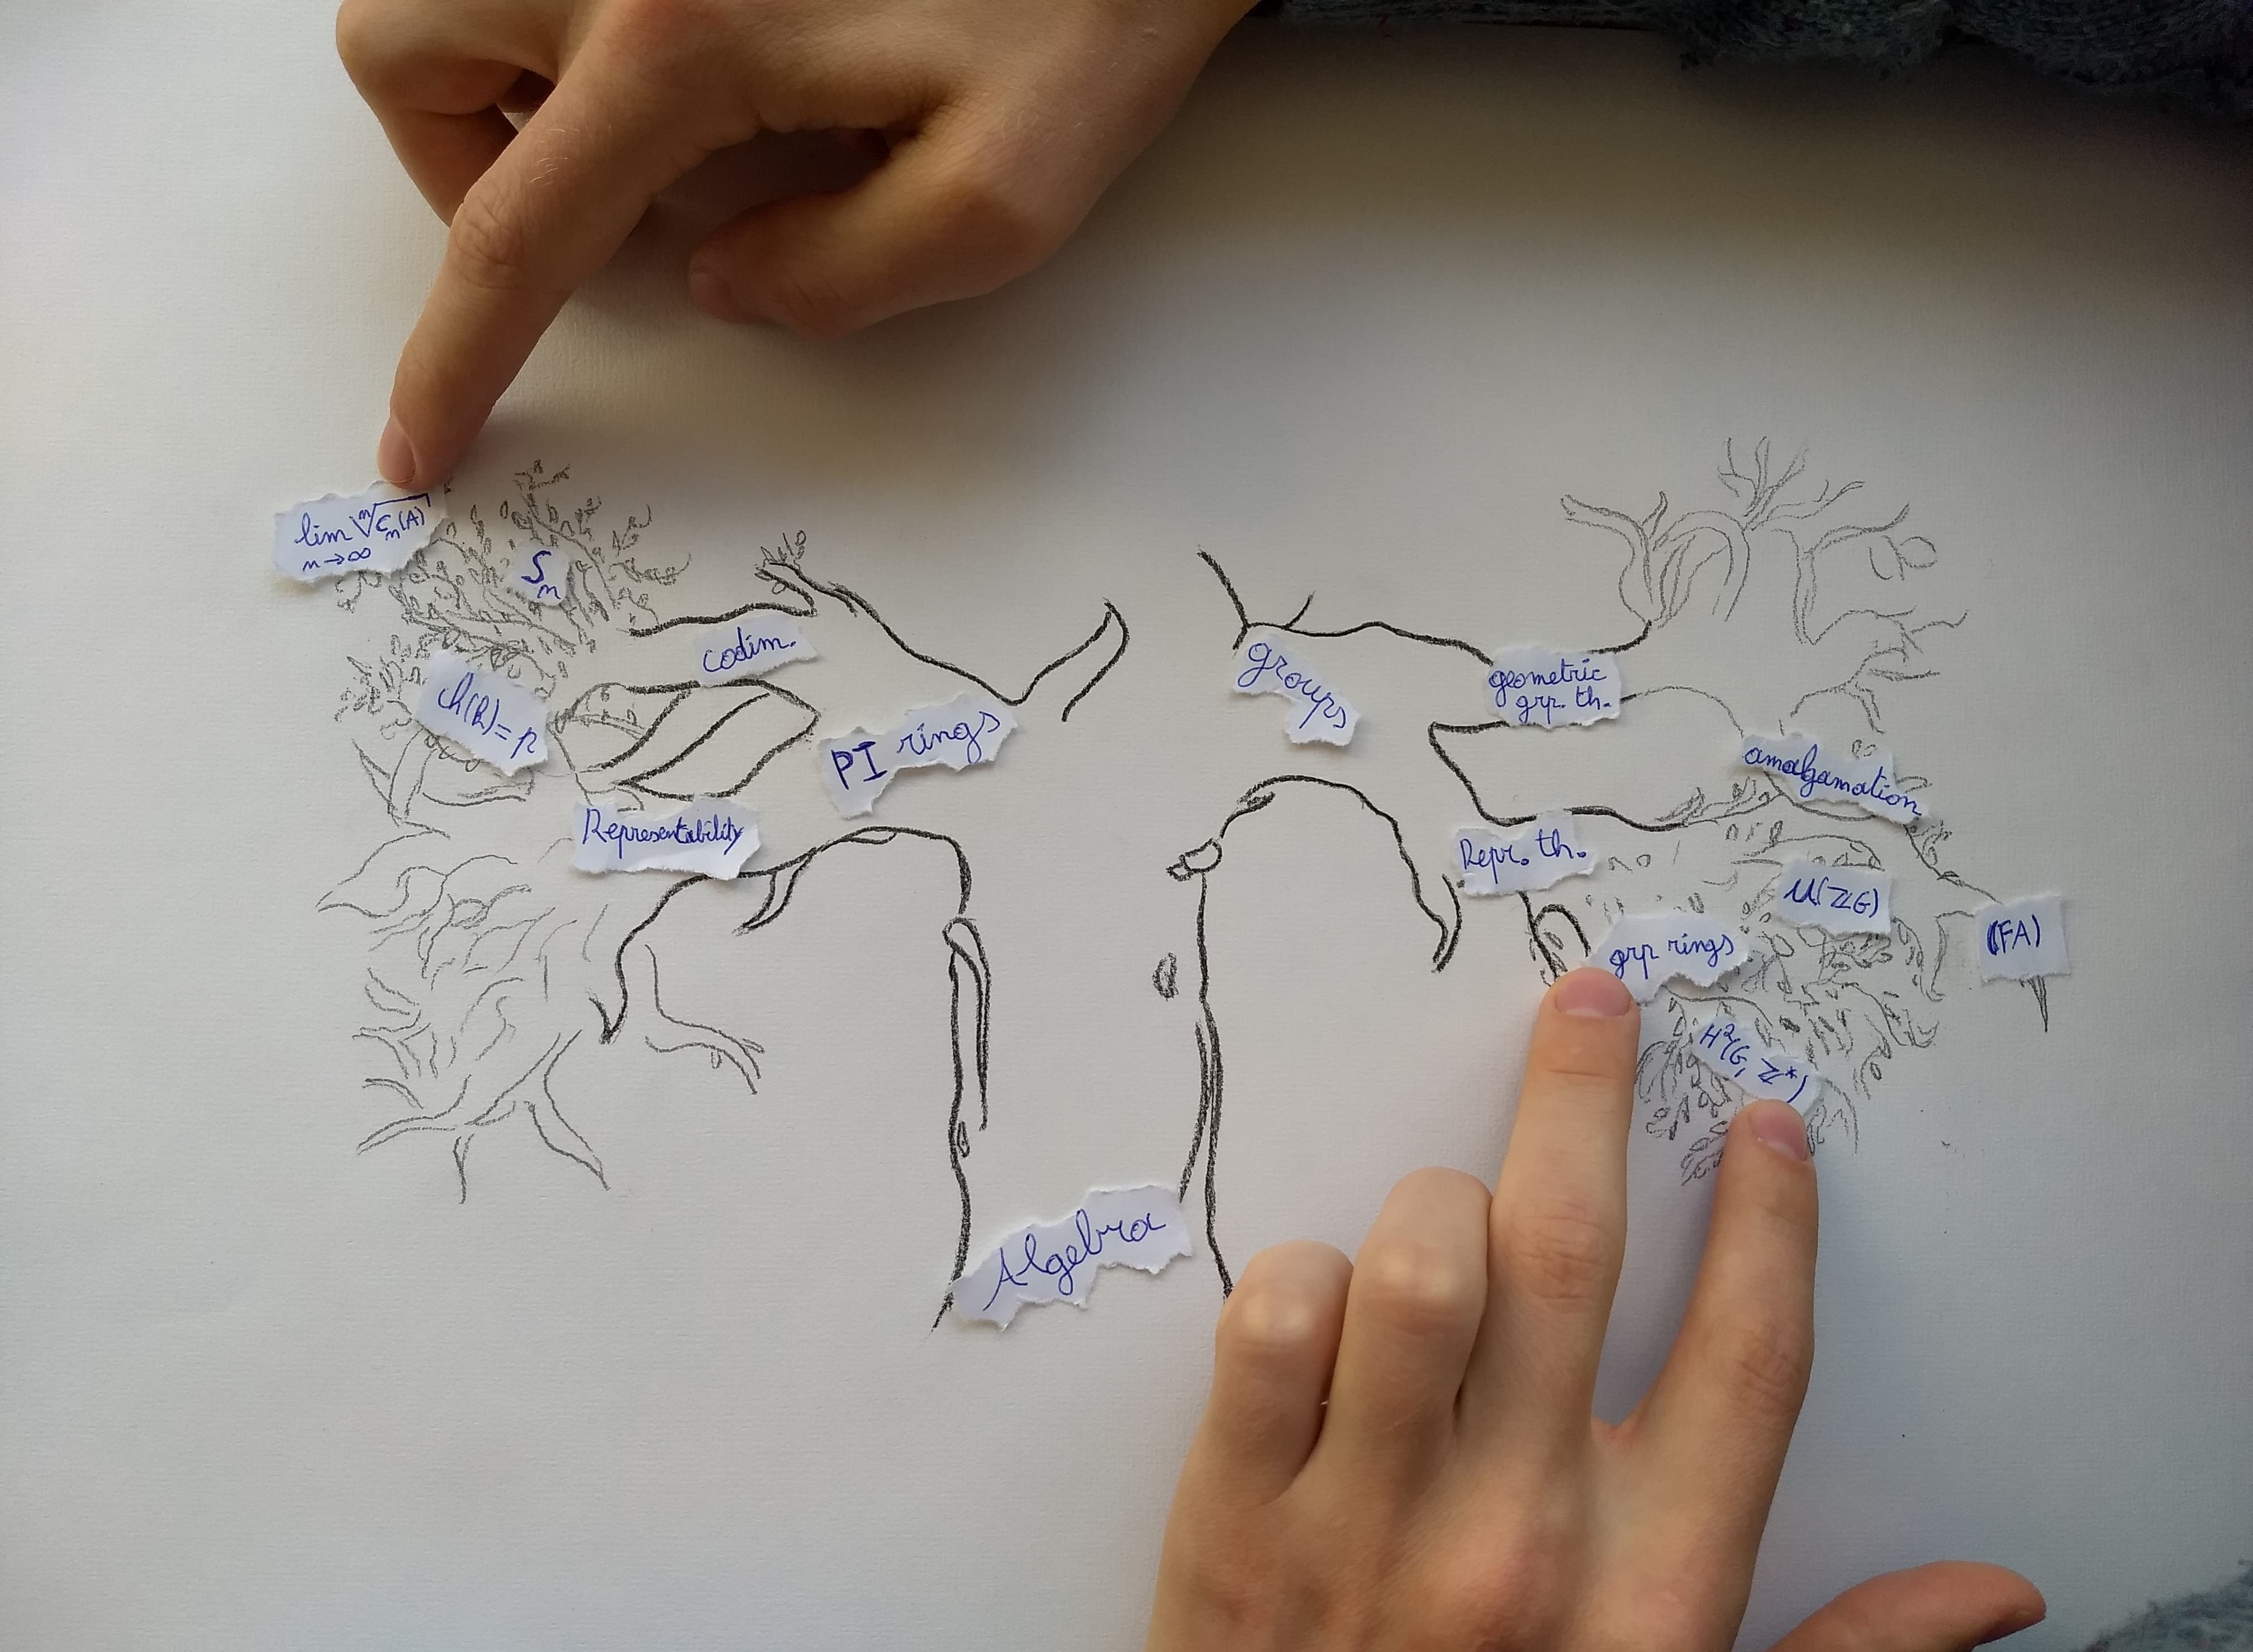 lim ⁿ√cₙ(A)
n→∞
Sₙ
codim.
ch(R)=p
PI rings
Representability
groups
geometric
grp. th.
amalgamation
Repr. th.
U(ℤG)
grp rings
(FA)
H²(G, ℤ*)
Algebra